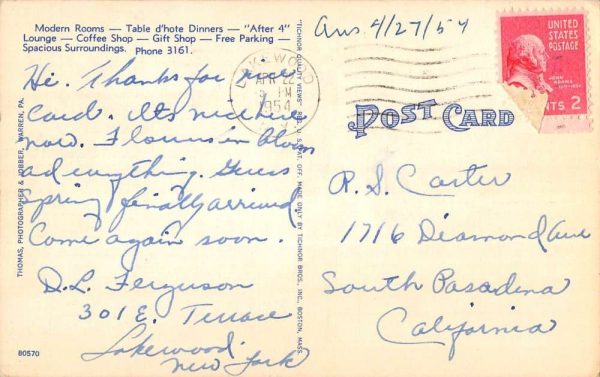 Modern Rooms — Table d'hote Dinners — "After 4"
Lounge — Coffee Shop — Gift Shop — Free Parking —
Spacious Surroundings. Phone 3161.
Ans. 4/27/54
LAKEWOOD
APR 22
5 PM
1954
N.Y.
UNITED
STATES
POSTAGE
JOHN
ADAMS
CENTS 2
POST CARD
Hi. Thanks for nice
card. Its nice here
now. Flowers in bloom
and everything. Guess
Spring finally arrived.
Come again soon.
D.L. Ferguson
301 E. Terrace
Lakewood
New York
R. S. Carter
1716 Diamond Ave
South Pasadena
California
THOMAS, PHOTOGRAPHER & JOBBER, WARREN, PA.
"TICHNOR QUALITY VIEWS" REG. U. S. PAT. OFF. MADE ONLY BY TICHNOR BROS., INC., BOSTON, MASS.
80570